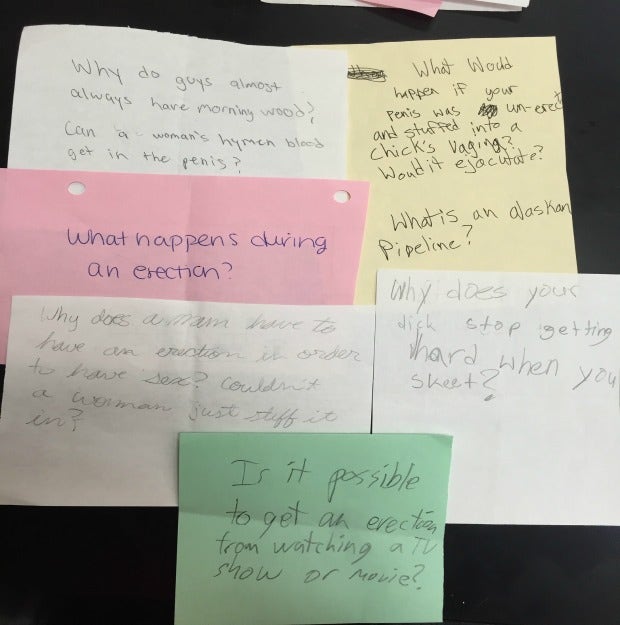 Why do guys almost
always have morning wood?
Can a woman's hymen blood
get in the penis?
What Would
happen if your
penis was un-erect
and stuffed into a
chick's vagina?
Would it ejacutate?
What is an alaskan
pipeline?
What happens during
an erection?
Why does a man have to
have an erection in order
to have sex? Couldn't
a woman just stuff it
in?
Why does your
dick stop getting
hard when you
skeet?
Is it possible
to get an erection
from watching a TV
show or movie?